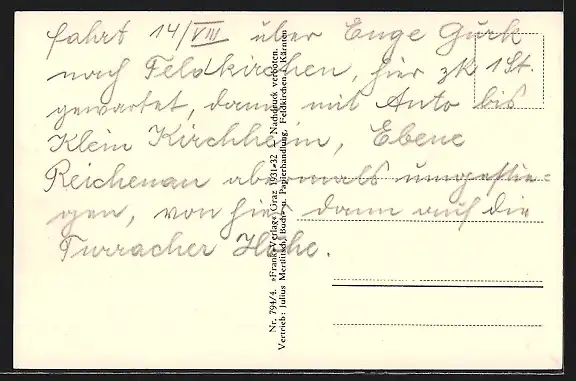 fahrt 14/VIII über Enge Gurk
nach Feldkirchen, hier zk 1 St.
gewartet, dann mit Auto bis
Klein Kirchheim, Ebene
Reichenau abermals umgestie-
gen, von hier dann auf die
Turracher Höhe.
Nr. 794/4. »Frank«Verlag« Graz 1931-32 — Nachdruck verboten.
Vertrieb: Julius Mertlitsch, Buch- u. Papierhandlung, Feldkirchen i. Kärnten